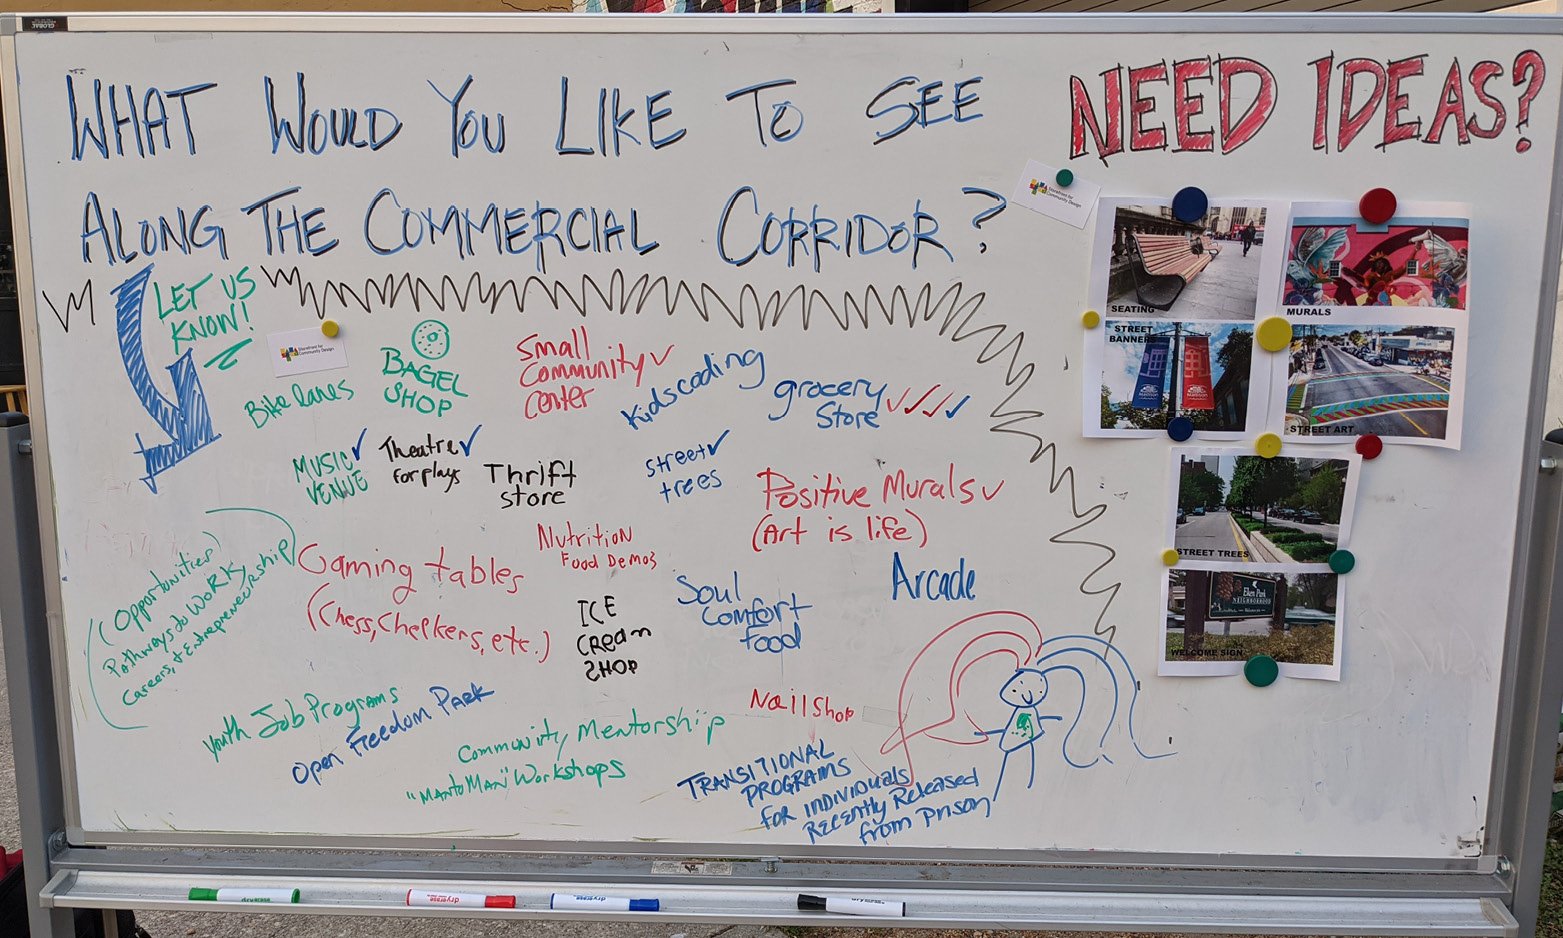 GLOBAL
WHAT WOULD YOU LIKE TO SEE
ALONG THE COMMERCIAL CORRIDOR?
NEED IDEAS?
LET US
KNOW!
Storefront for
Community Design
Storefront for
Community Design
Bike lanes
BAGEL
SHOP
Small
Community ✓
Center
Kidscoding
grocery
Store ✓✓✓✓
MUSIC ✓
VENUE
Theatre ✓
for plays
Thrift
store
street ✓
trees
Positive Murals ✓
(Art is life)
(Opportunities)
Pathways to Work,
Careers, + Entrepreneurship
Gaming tables
(Chess, Chelkers, etc.)
Nutrition
Food Demos
ICE
CREAM
SHOP
Soul
Comfort
food
Arcade
Youth Job Programs
Open Freedom Park
Community Mentorship
"Man to Man" Workshops
Nail Shop
TRANSITIONAL
PROGRAMS
FOR INDIVIDUALS
RECENTLY Released
from prison
SEATING
MURALS
STREET
BANNERS
STREET ART
STREET TREES
Elken Park
NEIGHBORHOOD
WELCOME SIGN
dryerase
dryerase
dryerase